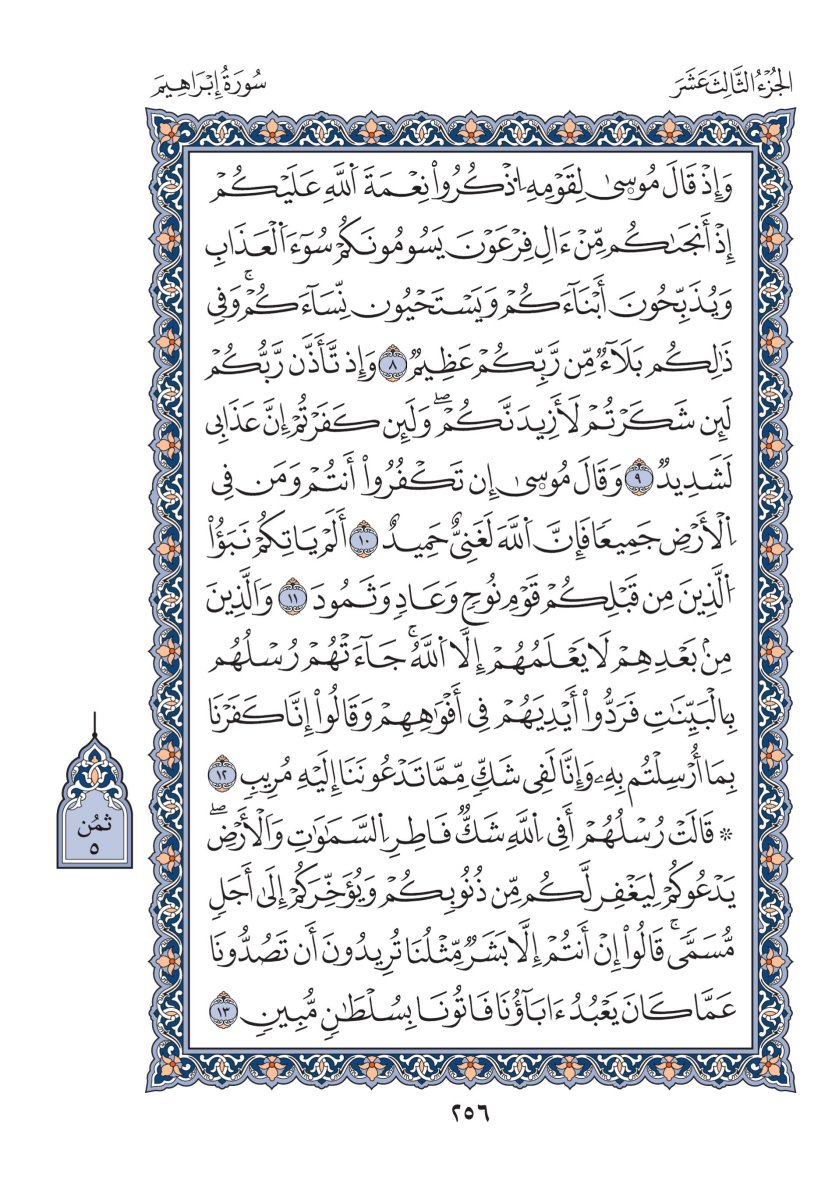 الجُزْءُ الثَّالِثَ عَشَرَ
سُورَةُ إِبْرَاهِيمَ
وَإِذْ قَالَ مُوسىٰ لِقَوْمِهِ اِذْكُرُواْ نِعْمَةَ اَللَّهِ عَلَيْكُمْ
إِذْ أَنجَىٰكُم مِّنْ ءَالِ فِرْعَوْنَ يَسُومُونَكُمْ سُوٓءَ اَلْعَذَابِ
وَيُذَبِّحُونَ أَبْنَآءَكُمْ وَيَسْتَحْيُونَ نِسَآءَكُمْۚ وَفِي
ذَٰلِكُم بَلَآءٌ مِّن رَّبِّكُمْ عَظِيمٌ ٨ وَإِذ تَّأَذَّن رَّبُّكُمْ
لَئِن شَكَرْتُمْ لَأَزِيدَنَّكُمْۖ وَلَئِن كَفَرْتُمْ إِنَّ عَذَابِي
لَشَدِيدٌ ٩ وَقَالَ مُوسىٰ إِن تَكْفُرُواْ أَنتُمْ وَمَن فِي
اِلْأَرْضِ جَمِيعًا فَإِنَّ اَللَّهَ لَغَنِيٌّ حَمِيدٌ ١٠ أَلَمْ يَاتِكُمْ نَبَؤُاْ
اُلَّذِينَ مِن قَبْلِكُمْ قَوْمِ نُوحٍ وَعَادٍ وَثَمُودَ ١١ وَالَّذِينَ
مِنۢ بَعْدِهِمْ لَا يَعْلَمُهُمْ إِلَّا اَللَّهُۚ جَآءَتْهُمْ رُسُلُهُم
بِالْبَيِّنَٰتِ فَرَدُّواْ أَيْدِيَهُمْ فِي أَفْوَٰهِهِمْ وَقَالُواْ إِنَّا كَفَرْنَا
بِمَا أُرْسِلْتُم بِهِۦ وَإِنَّا لَفِي شَكٍّ مِّمَّا تَدْعُونَنَا إِلَيْهِ مُرِيبٍ ١٢
۞ قَالَتْ رُسُلُهُمْ أَفِي اِللَّهِ شَكٌّ فَاطِرِ اِلسَّمَٰوَٰتِ وَالْأَرْضِۖ
يَدْعُوكُمْ لِيَغْفِر لَّكُم مِّن ذُنُوبِكُمْ وَيُؤَخِّرَكُمْ إِلَىٰ أَجَلٍ
مُّسَمًّىۚ قَالُواْ إِنْ أَنتُمْ إِلَّا بَشَرٌ مِّثْلُنَا تُرِيدُونَ أَن تَصُدُّونَا
عَمَّا كَانَ يَعْبُدُ ءَابَآؤُنَا فَاتُونَا بِسُلْطَٰنٍ مُّبِينٍ ١٣
ثُمُن
٥
٢٥٦